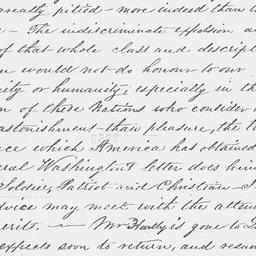 really pitied - more indeed than
- The indiscriminate expulsion an
of that whole class and descript
n would not do honour to our
ity or humanity especially in th
n of these Nations who consider
astonishment than pleasure, the
ce which America has obtained
eral Washington's letter does him
Soldier, Patriot and Christian - I
dvice may meet with the atten
erits. - Mr Hartly is gone to
expects soon to return, and resum